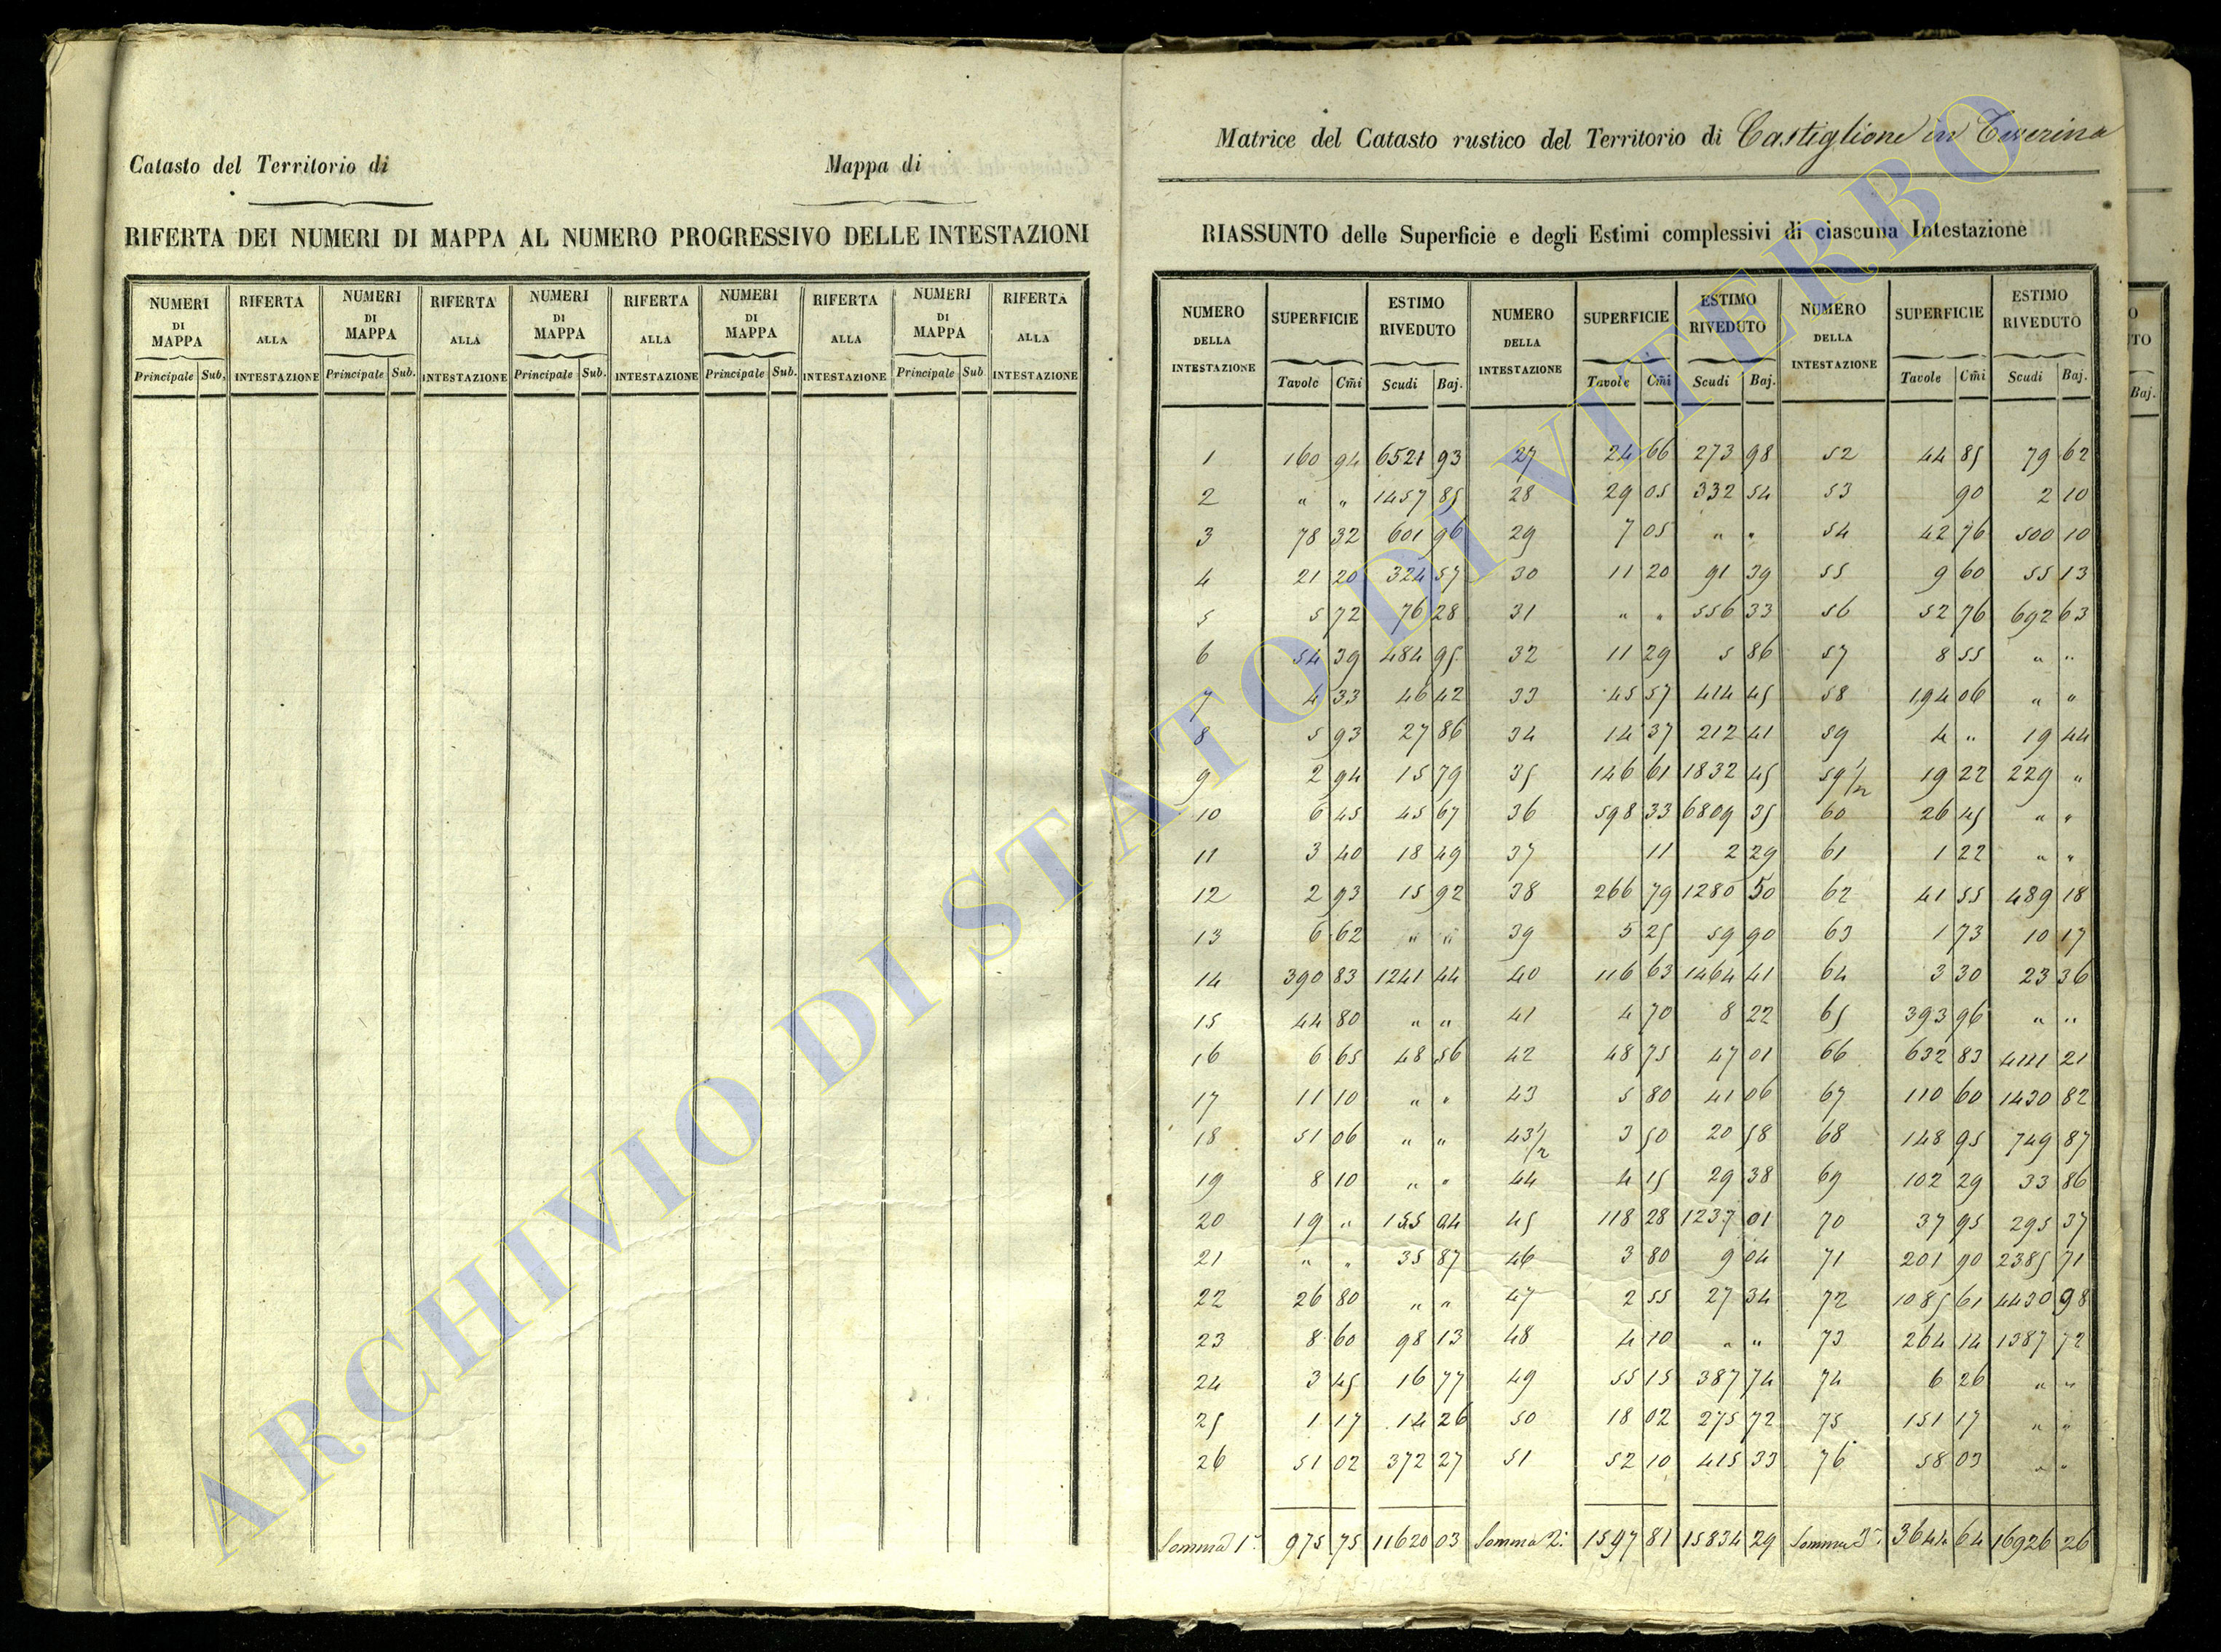 Catasto del Territorio di Mappa di
RIFERTA DEI NUMERI DI MAPPA AL NUMERO PROGRESSIVO DELLE INTESTAZIONI
NUMERI DI MAPPA RIFERTA ALLA INTESTAZIONE NUMERI DI MAPPA RIFERTA ALLA INTESTAZIONE NUMERI DI MAPPA RIFERTA ALLA INTESTAZIONE NUMERI DI MAPPA RIFERTA ALLA INTESTAZIONE NUMERI DI MAPPA RIFERTA ALLA INTESTAZIONE
Principale Sub. Principale Sub. Principale Sub. Principale Sub. Principale Sub
Matrice del Catasto rustico del Territorio di Castiglione in Teverina
RIASSUNTO delle Superficie e degli Estimi complessivi di ciascuna Intestazione
NUMERO DELLA INTESTAZIONE SUPERFICIE ESTIMO RIVEDUTO NUMERO DELLA INTESTAZIONE SUPERFICIE ESTIMO RIVEDUTO NUMERO DELLA INTESTAZIONE SUPERFICIE ESTIMO RIVEDUTO
Tavole Cm̃i Scudi Baj. Tavole Cm̃i Scudi Baj. Tavole Cm̃i Scudi Baj.
1 160 94 6521 93 27 24 66 273 98 52 44 85 79 62
2 " " 1457 85 28 29 05 332 54 53 90 2 10
3 78 32 601 96 29 7 05 " " 54 42 76 500 10
4 21 20 324 57 30 11 20 91 39 55 9 60 55 13
5 5 72 76 28 31 " " 556 33 56 52 76 692 63
6 54 39 484 95 32 11 29 5 86 57 8 55 " "
7 4 33 46 42 33 45 57 414 45 58 194 06 " "
8 5 93 27 86 34 14 37 212 41 59 4 " 19 44
9 2 94 15 79 35 146 61 1832 45 59 1/2 19 22 229 "
10 6 45 45 67 36 598 33 6809 35 60 26 45 " "
11 3 40 18 49 37 11 2 29 61 1 22 " "
12 2 93 15 92 38 266 79 1280 50 62 41 55 489 18
13 6 62 " " 39 5 25 59 90 63 1 73 10 17
14 390 83 1241 44 40 116 63 1464 41 64 3 30 23 36
15 44 80 " " 41 4 70 8 22 65 393 96 " "
16 6 65 48 56 42 48 75 47 01 66 632 83 4111 21
17 11 10 " " 43 5 80 41 06 67 110 60 1430 82
18 51 06 " " 43 1/2 3 50 20 58 68 148 95 749 87
19 8 10 " " 44 4 15 29 38 69 102 29 33 86
20 19 " 155 94 45 118 28 1237 01 70 37 95 295 37
21 " " 35 87 46 3 80 9 04 71 201 90 2385 71
22 26 80 " " 47 2 55 27 34 72 1085 61 4430 98
23 8 60 98 13 48 4 10 " " 73 264 14 1387 72
24 3 45 16 77 49 55 15 387 74 74 6 26 " "
25 1 17 14 26 50 18 02 275 72 75 151 17 " "
26 51 02 372 27 51 52 10 415 33 76 58 03 " "
Somma 1ª 975 75 11620 03 Somma 2ª 1597 81 15834 29 Somma 3ª 3644 64 16926 26
O
TO
Baj.
ARCHIVIO DI STATO DI VITERBO